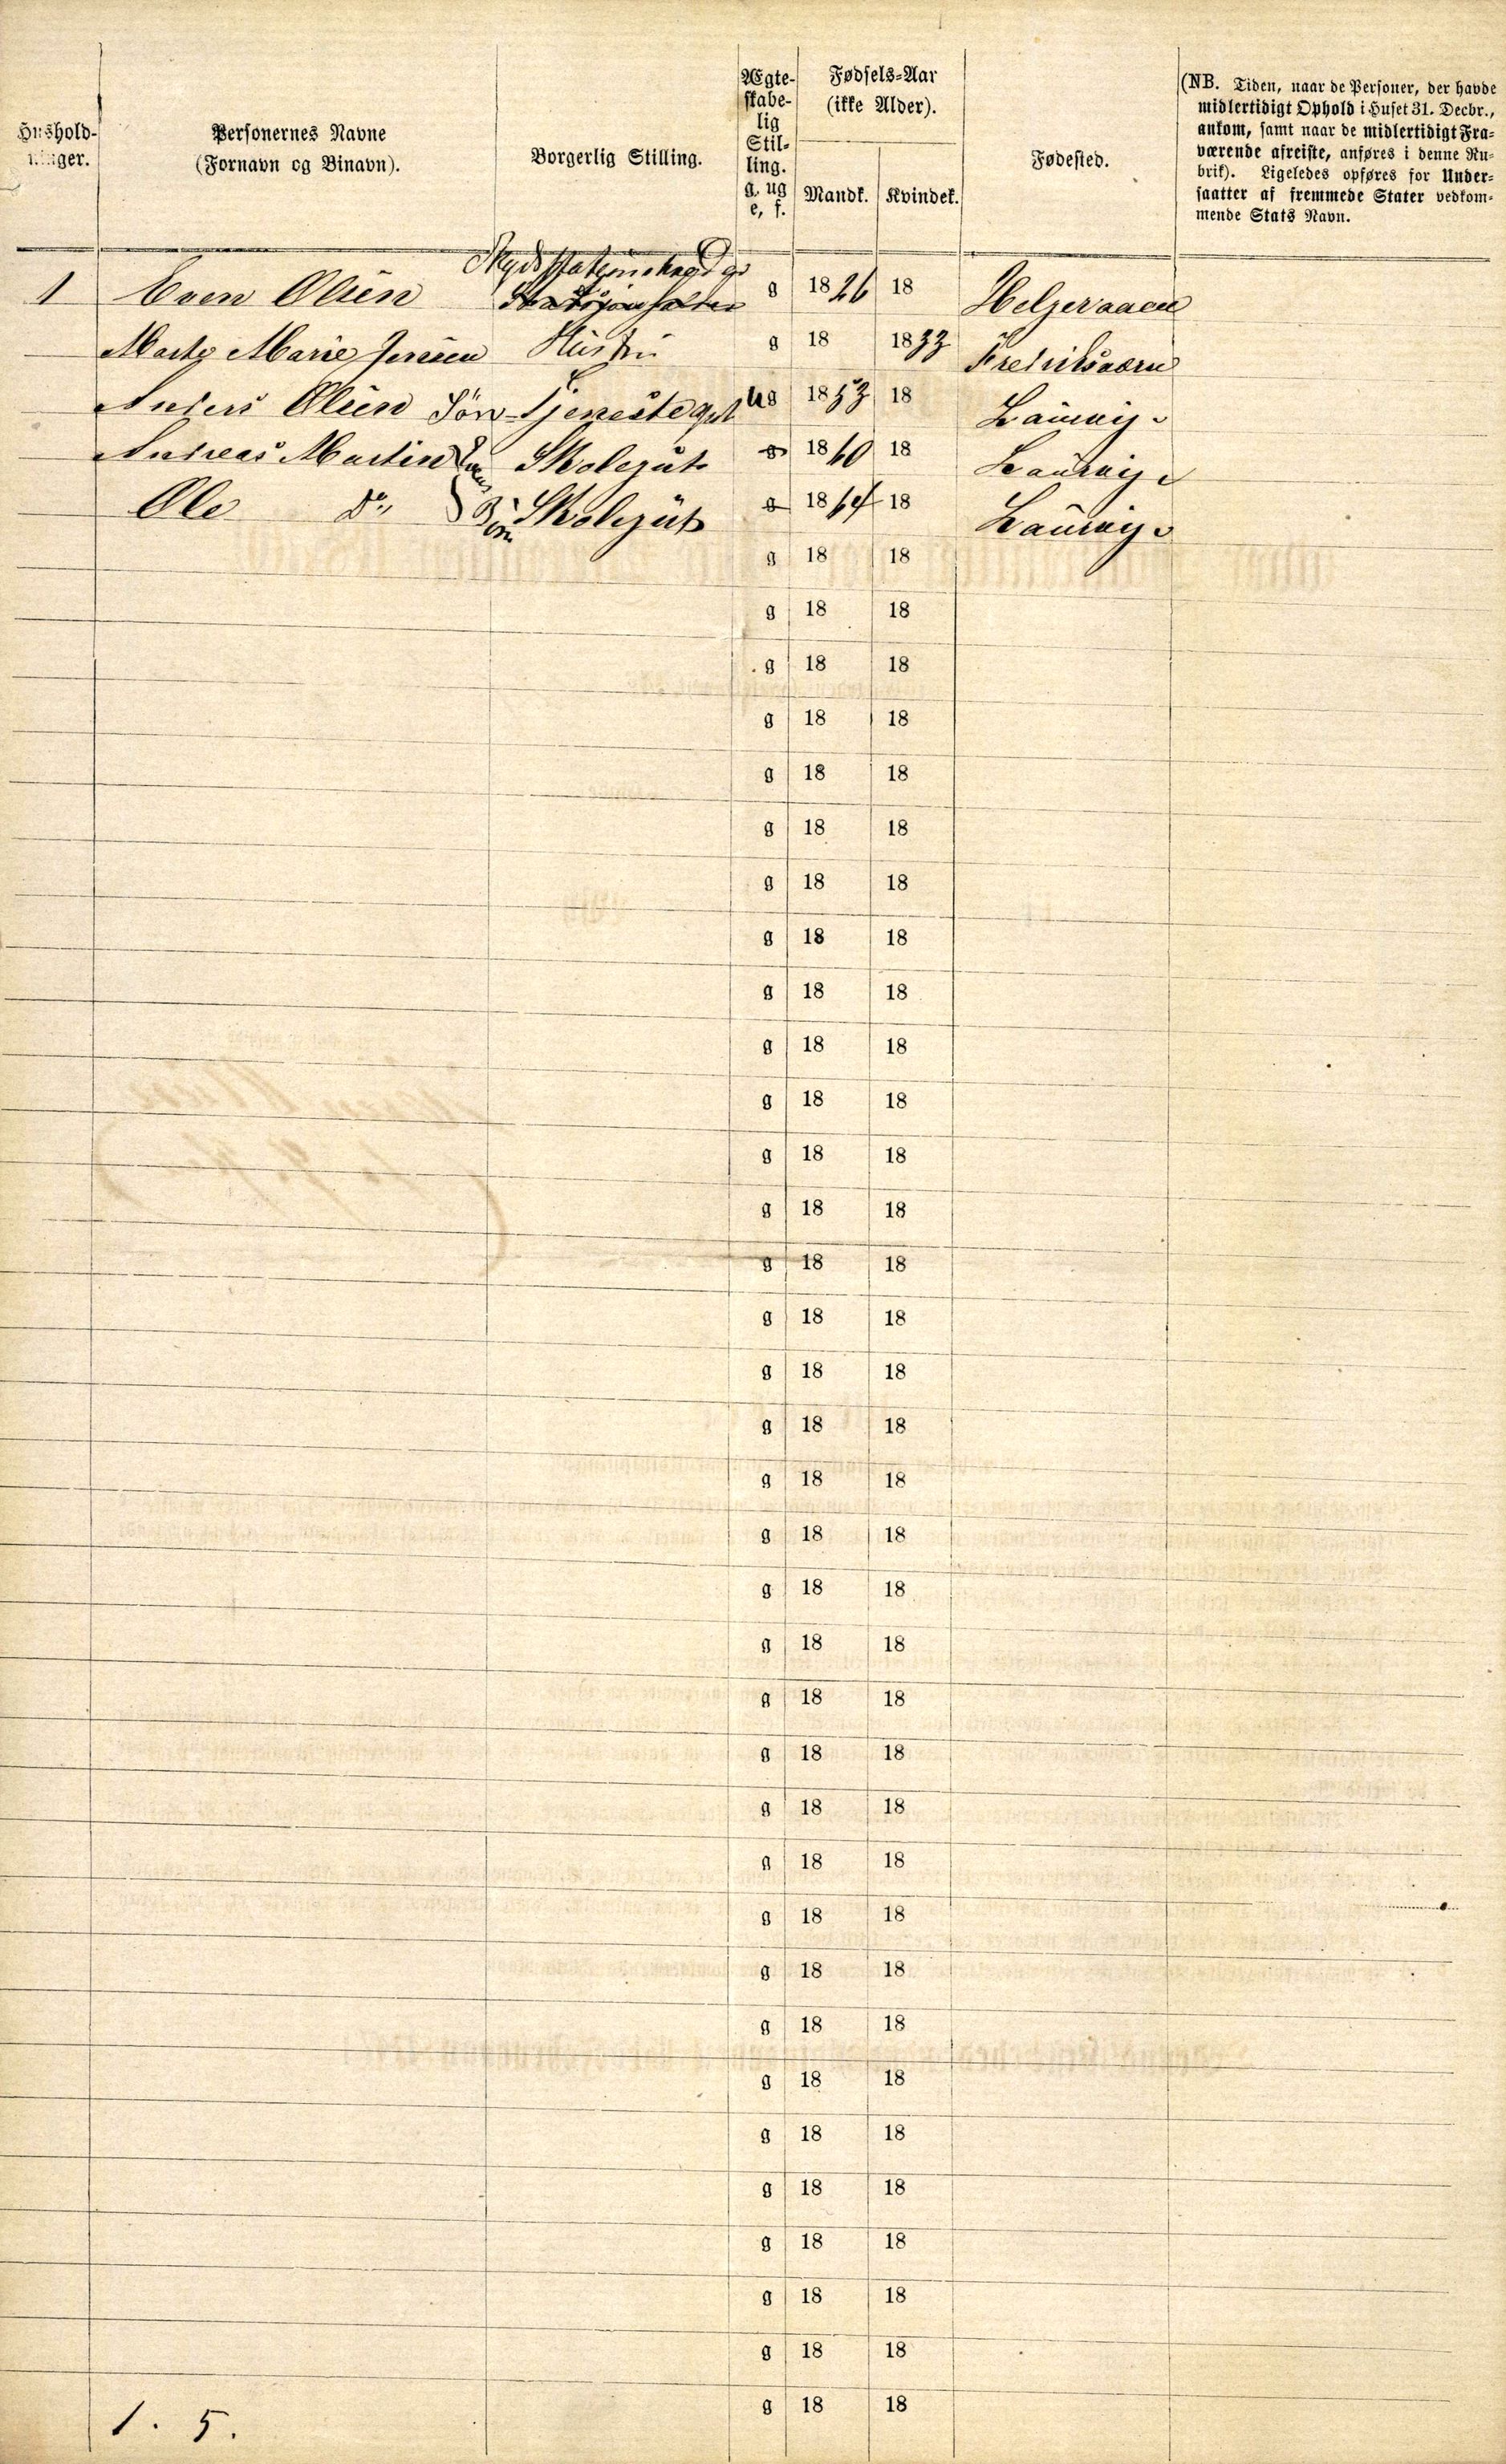 Personernes Navne
(Fornavn og Binavn).
Borgerlig Stilling.
Ægte-
skabe-
lig
Stil-
ling.
g, ug
e, f.
Fødsels-Aar
(ikke Alder).
Mandk. Kvindek.
Fødested.
(NB. Tiden, naar de Personer, der havde
midlertidigt Ophold i Huset 31. Decbr.,
ankom, samt naar de midlertidigt Fra-
værende afreiste, anføres i denne Ru-
brik). Ligeledes opføres for Under-
saatter af fremmede Stater vedkom-
mende Stats Navn.
1 Even Olsen g 1826 18 Helgeraaen
Marie Jensen Hustru g 18 1833 Fredriksværn
Anders Olsen Søn Tjenestegut ug 1853 18 Laurvig
Andreas Martin Skolegut 1860 18 Laurvig
Ole Do Søn Skolegut 18 18 Laurvig
g 18 18
g 18 18
g 18 18
g 18 18
g 18 18
g 18 18
g 18 18
g 18 18
g 18 18
g 18 18
g 18 18
g 18 18
g 18 18
g 18 18
g 18 18
g 18 18
g 18 18
g 18 18
g 18 18
g 18 18
g 18 18
g 18 18
g 18 18
g 18 18
g 18 18
g 18 18
g 18 18
g 18 18
g 18 18
g 18 18
g 18 18
g 18 18
g 18 18
g 18 18
g 18 18
1. 5.